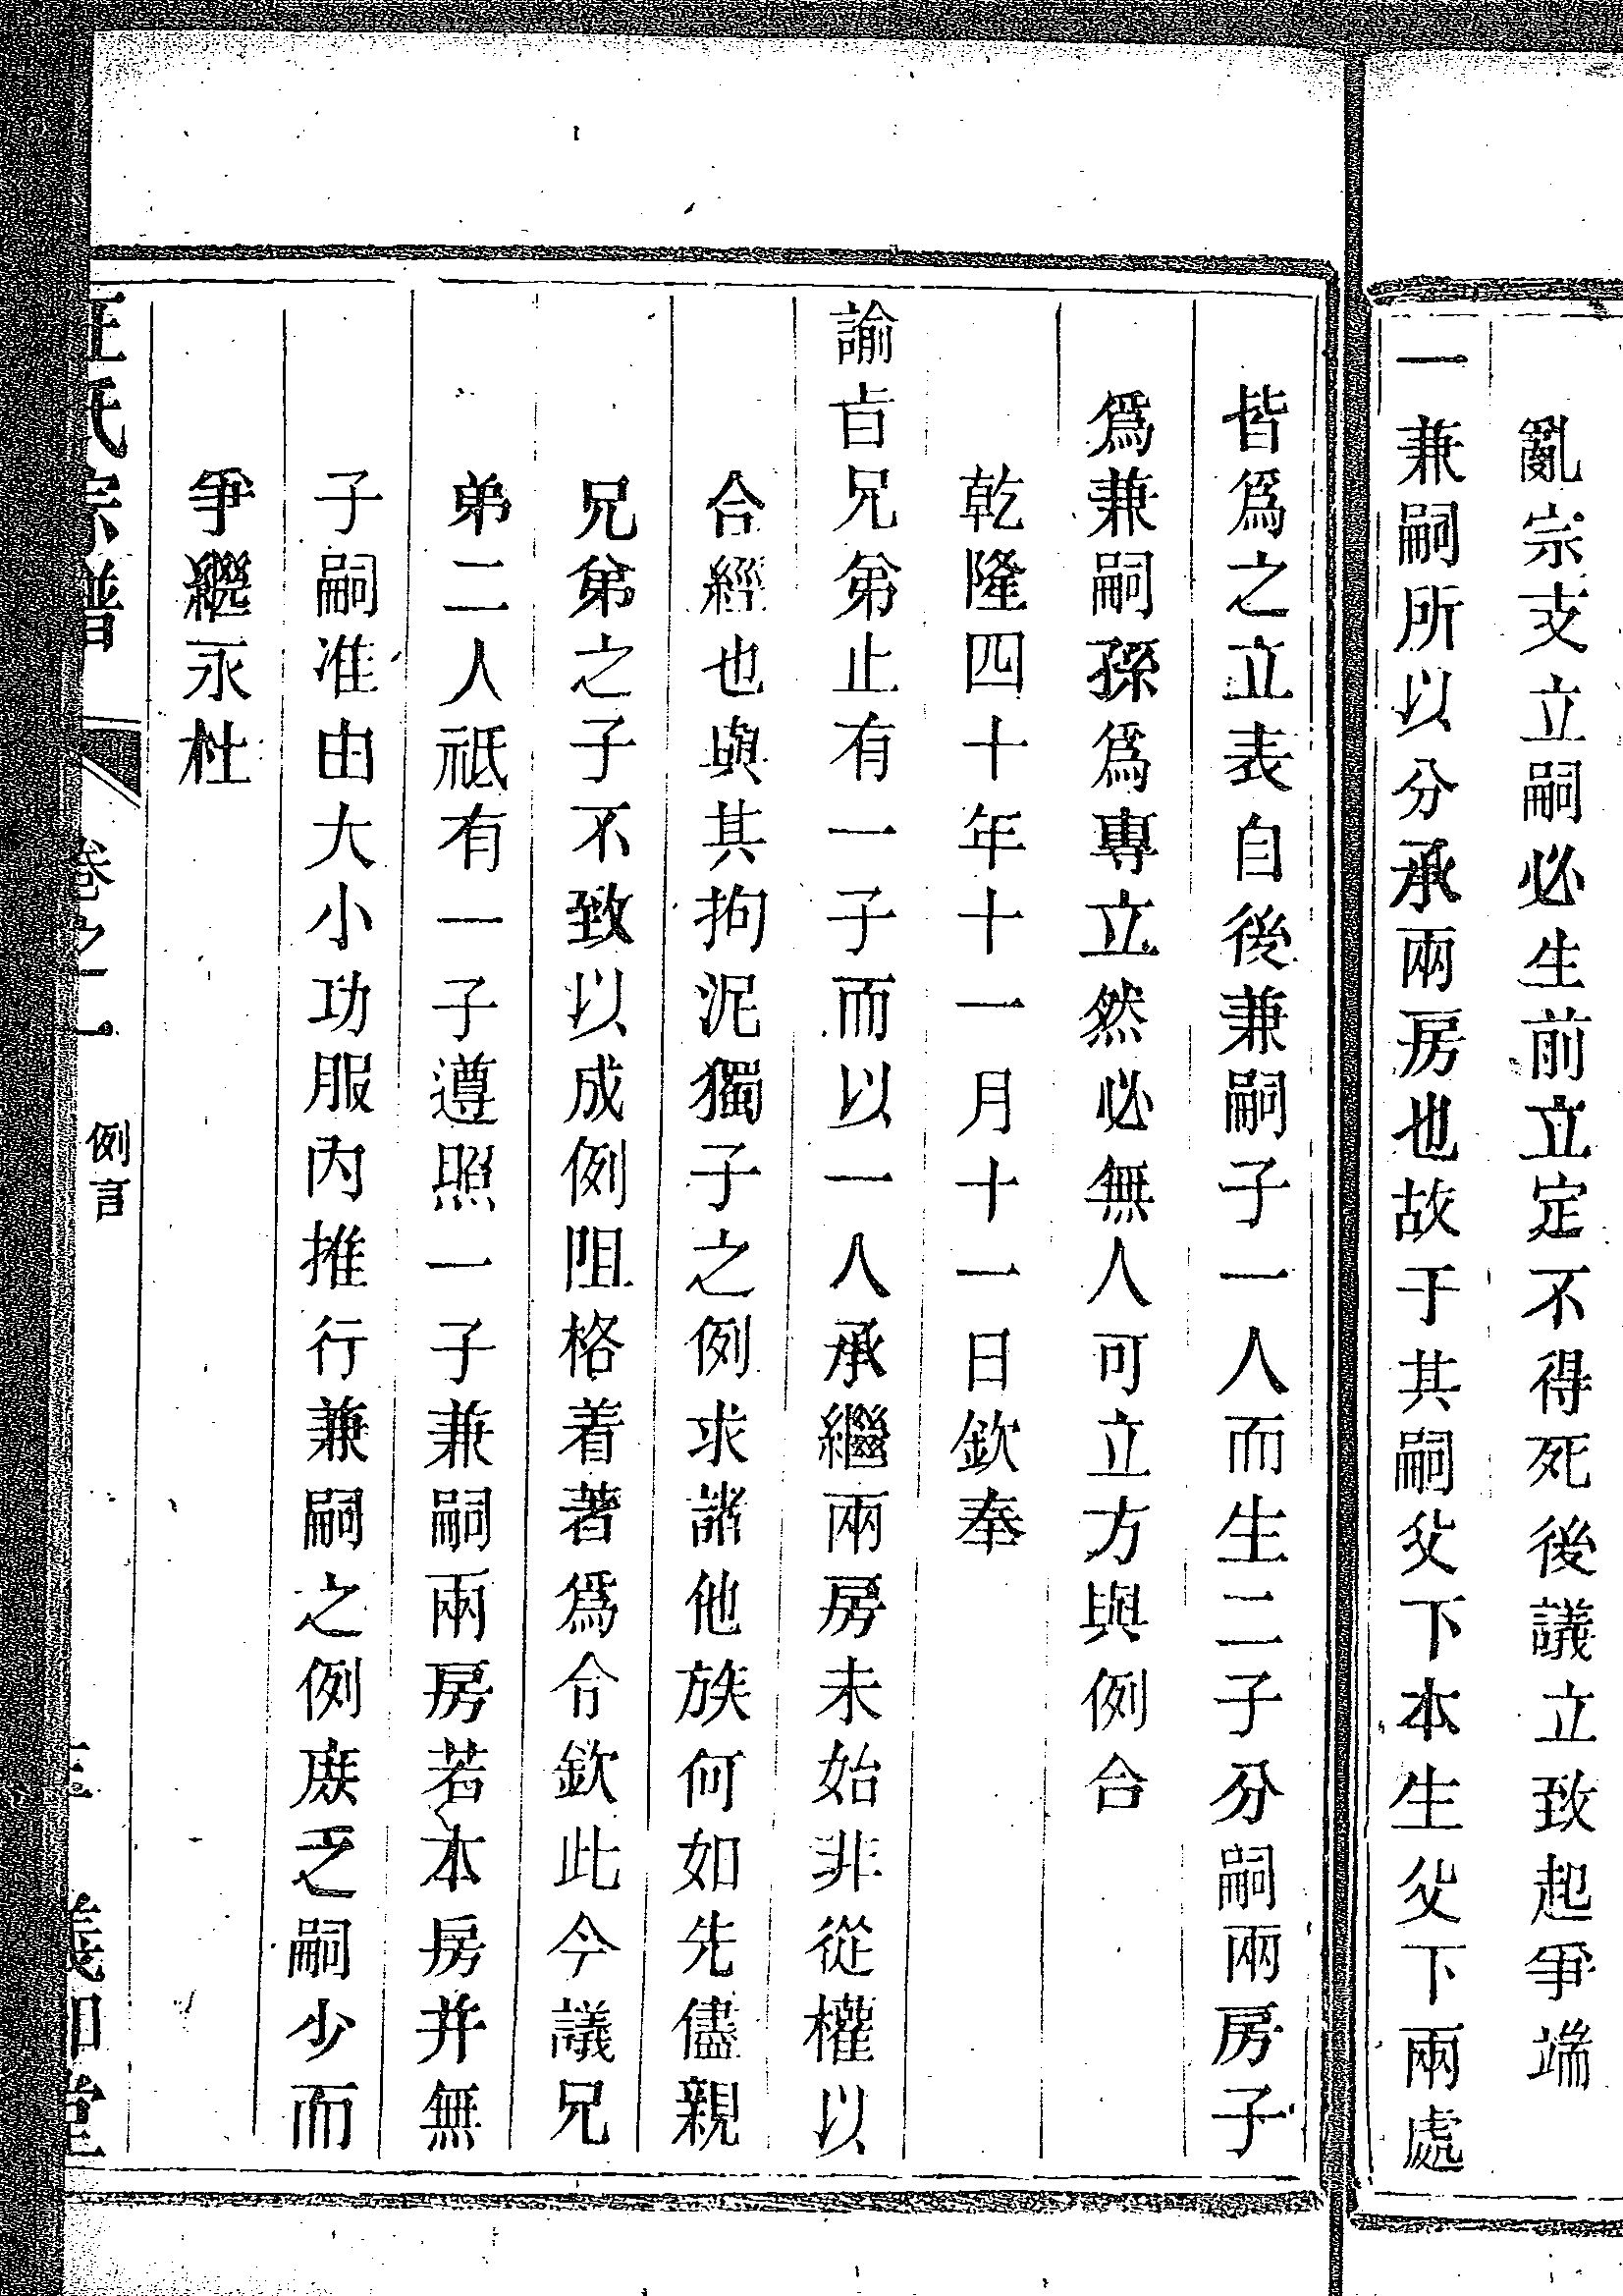 亂宗支立嗣必生前立定不得死後議立致起爭端
一兼嗣所以分承兩房也故于其嗣父下本生父下兩處
皆爲之立表自後兼嗣子一人而生二子分嗣兩房子
爲兼嗣孫爲專立然必無人可立方與例合
乾隆四十年十一月十一日欽奉
諭㫖兄弟止有一子而以一人承繼兩房未始非從權以
合經也與其拘泥獨子之例求諸他族何如先儘親
兄弟之子不致以成例阻格着著爲令欽此今議兄
弟二人祗有一子遵照一子兼嗣兩房若本房并無
子嗣准由大小功服內推行兼嗣之例庻乏嗣少而
爭繼永杜
氏宗譜 卷之一 例言 義和堂